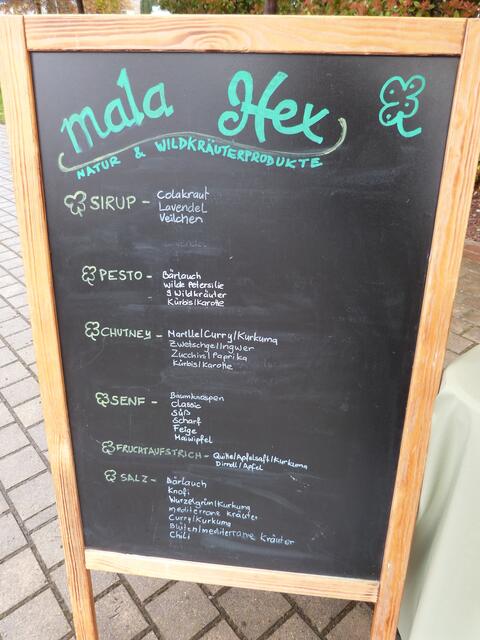 mala Hex
NATUR & WILDKRÄUTERPRODUKTE
SIRUP - Colakraut
Lavendel
Veilchen
PESTO - Bärlauch
Wilde Petersilie
9 Wildkräuter
Kürbis/Karotte
CHUTNEY - Marille/Curry/Kurkuma
Zwetschge/Ingwer
Zucchini/Paprika
Kürbis/Karotte
SENF - Baumknospen
Classic
Süß
Scharf
Feige
Maiwipfel
FRUCHTAUFSTRICH - Quitte/Apfelsaft/Kurkuma
Dirndl/Apfel
SALZ - Bärlauch
Knofi
Wurzelgrün/Kurkuma
mediterrane Kräuter
Curry/Kurkuma
Blüten/mediterrane Kräuter
Chili